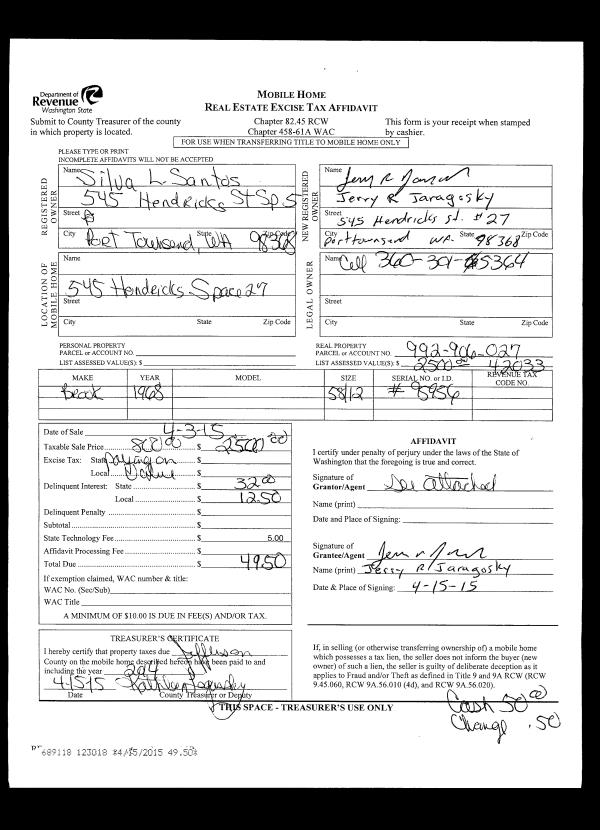 Department of
Revenue
Washington State
MOBILE HOME
REAL ESTATE EXCISE TAX AFFIDAVIT
Submit to County Treasurer of the county
in which property is located.
Chapter 82.45 RCW
Chapter 458-61A WAC
This form is your receipt when stamped
by cashier.
FOR USE WHEN TRANSFERRING TITLE TO MOBILE HOME ONLY
PLEASE TYPE OR PRINT
INCOMPLETE AFFIDAVITS WILL NOT BE ACCEPTED
REGISTERED OWNER
Name Silva L Santos
545 Hendricks St Sp.
Street
City State Zip Code
Port Townsend, WA 98368
NEW REGISTERED OWNER
Name
Jerry R Jaragosky
Street 545 Hendricks St. #27
City State Zip Code
Porttownsend WA. 98368
LOCATION OF MOBILE HOME
Name
545 Hendricks Space 27
Street
City State Zip Code
LEGAL OWNER
Name Cell 360-301-5364
Street
City State Zip Code
PERSONAL PROPERTY
PARCEL or ACCOUNT NO.
LIST ASSESSED VALUE(S): $
REAL PROPERTY
PARCEL or ACCOUNT NO. 992-906-027
LIST ASSESSED VALUE(S): $ 2500.00 42033
MAKE YEAR MODEL SIZE SERIAL NO. or I.D. REVENUE TAX CODE NO.
Brook 1968 58/12 # S956
Date of Sale 4-3-15
Taxable Sale Price $ 800.00 2500.00
Excise Tax: State $ paying on
Local $ Value
Delinquent Interest: State $ 32.00
Local $ 12.50
Delinquent Penalty $
Subtotal $
State Technology Fee $ 5.00
Affidavit Processing Fee $
Total Due $ 49.50
If exemption claimed, WAC number & title:
WAC No. (Sec/Sub)
WAC Title
A MINIMUM OF $10.00 IS DUE IN FEE(S) AND/OR TAX.
AFFIDAVIT
I certify under penalty of perjury under the laws of the State of
Washington that the foregoing is true and correct.
Signature of
Grantor/Agent See attached
Name (print)
Date and Place of Signing:
Signature of
Grantee/Agent
Name (print) Jerry R Jaragosky
Date & Place of Signing: 4-15-15
TREASURER'S CERTIFICATE
I hereby certify that property taxes due Jefferson
County on the mobile home described hereon have been paid to and
including the year 2014
4/15/15
Date County Treasurer or Deputy
If, in selling (or otherwise transferring ownership of) a mobile home
which possesses a tax lien, the seller does not inform the buyer (new
owner) of such a lien, the seller is guilty of deliberate deception as it
applies to Fraud and/or Theft as defined in Title 9 and 9A RCW (RCW
9.45.060, RCW 9A.56.010 (4d), and RCW 9A.56.020).
THIS SPACE - TREASURER'S USE ONLY
Cash 50.00
Change .50
689118 123018 *4/15/2015 49.50*